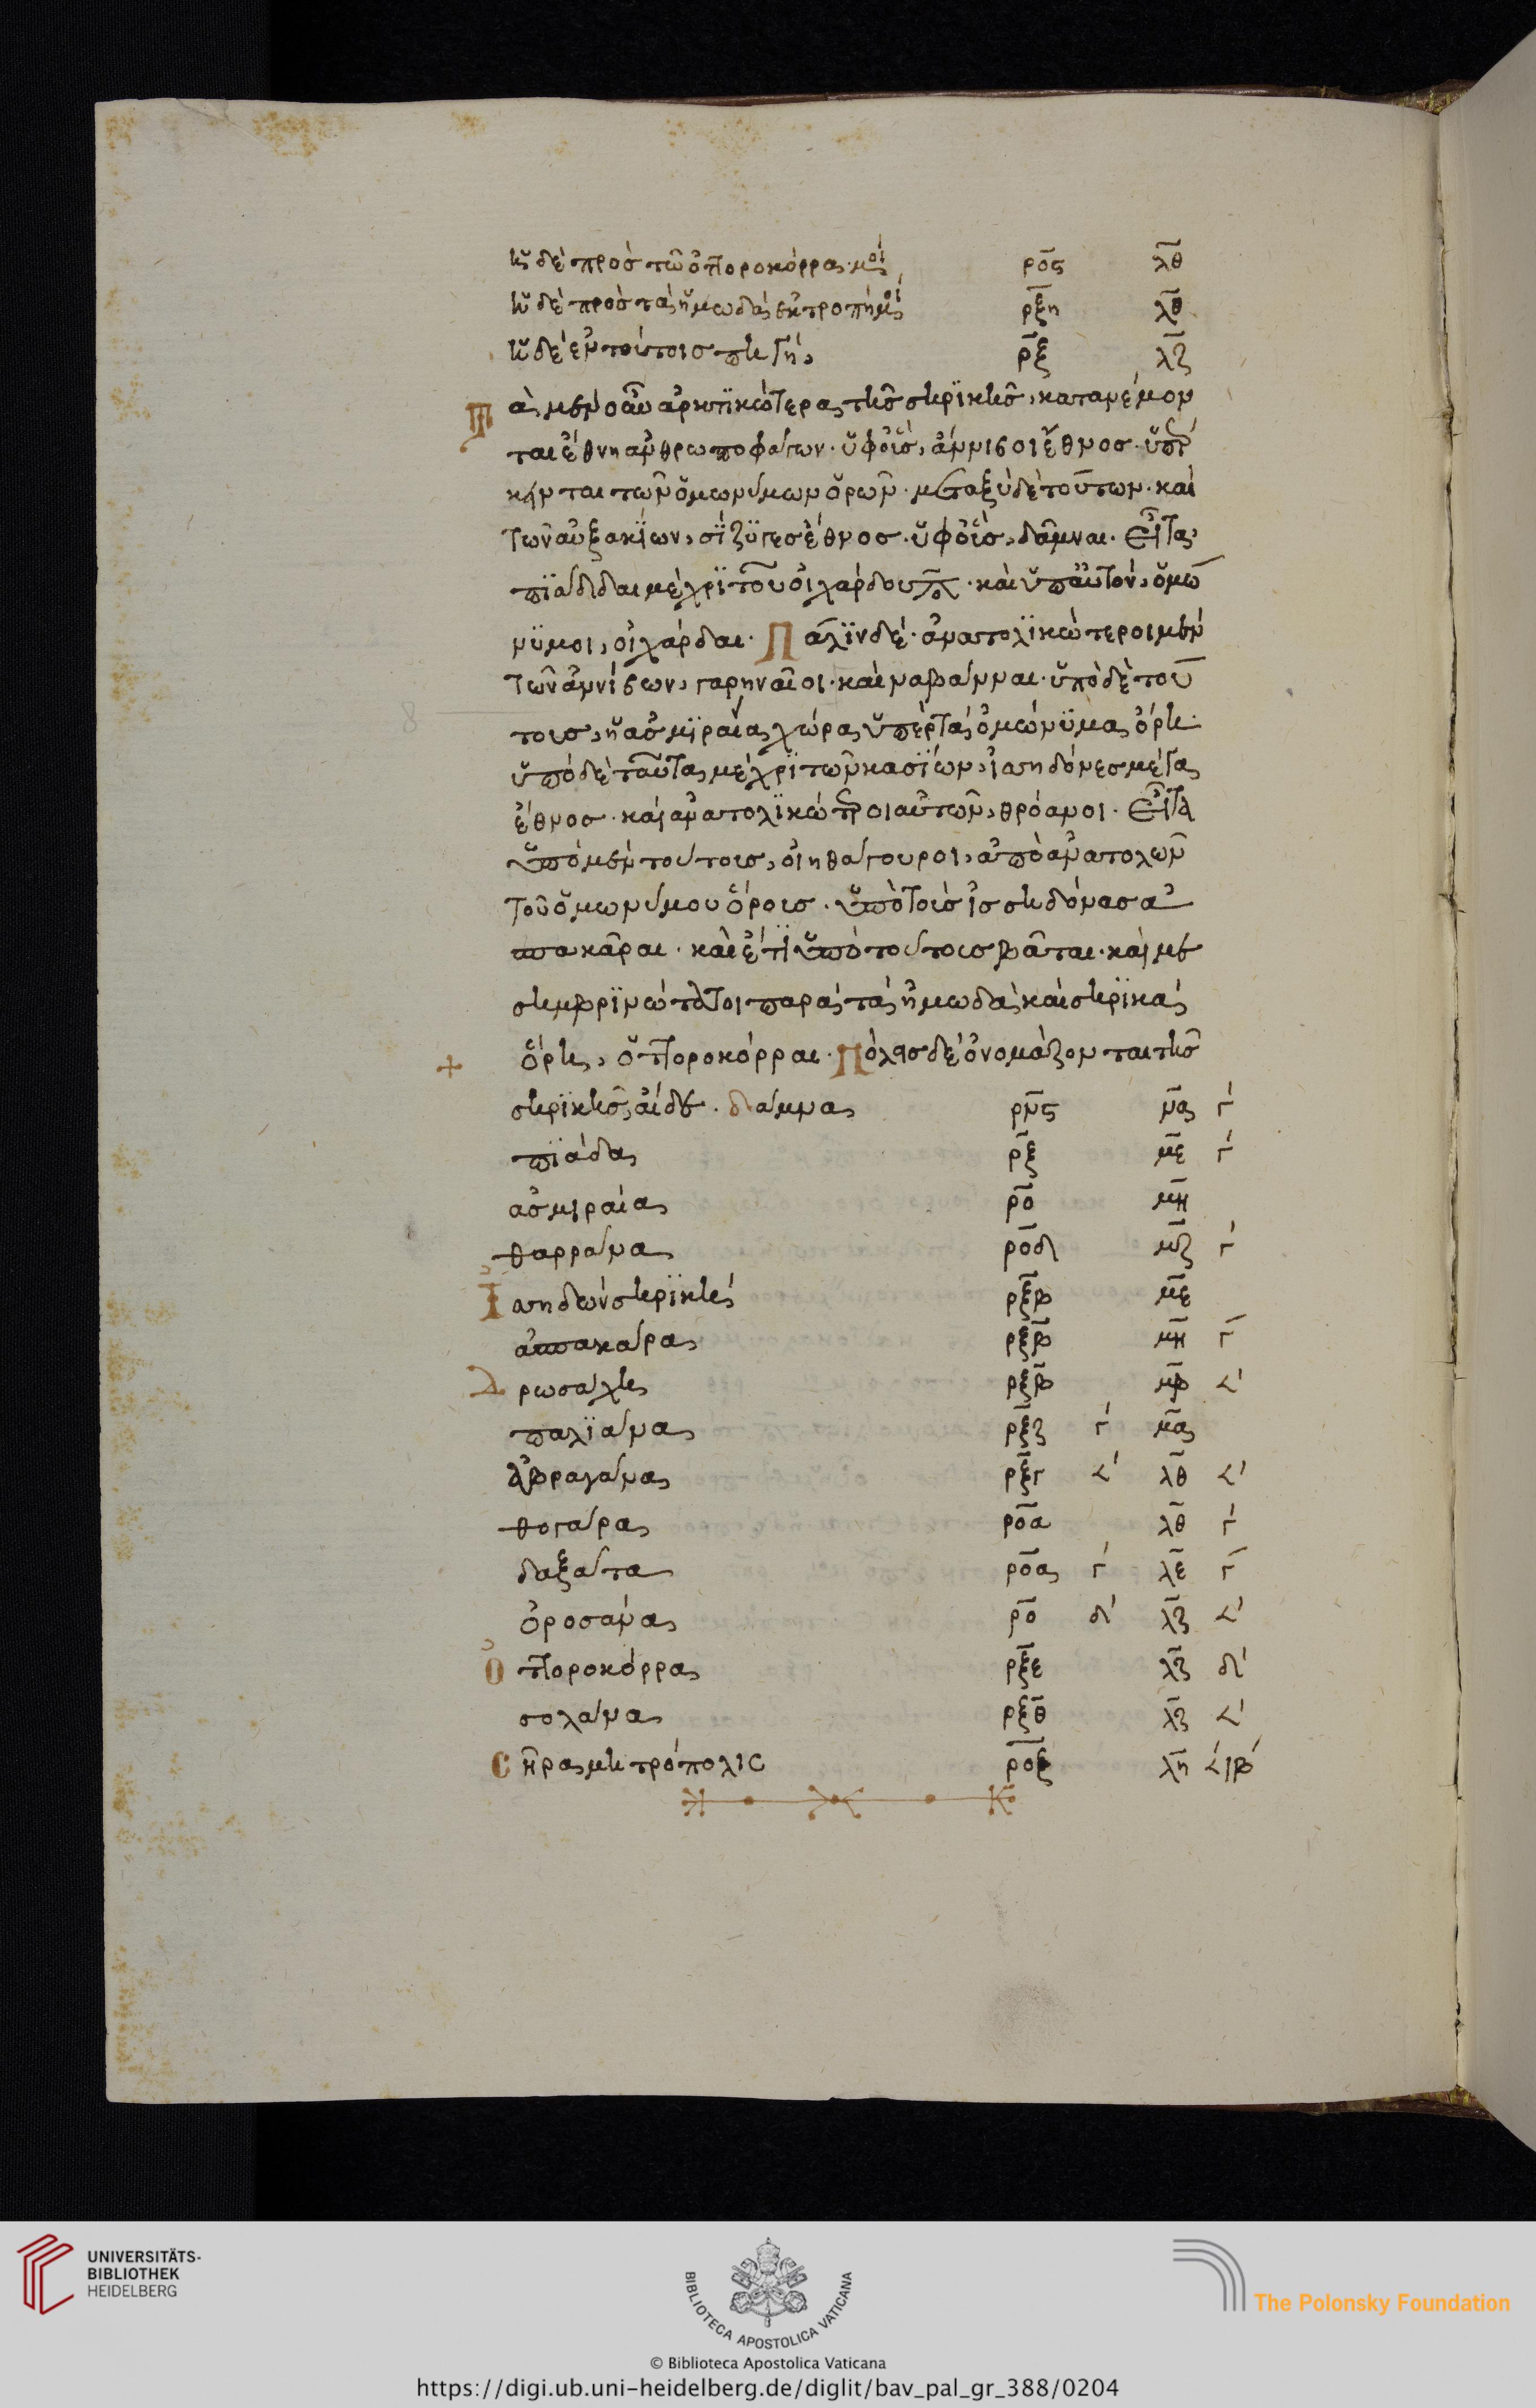 ἡ δὲ πρὸς τῶ ὀττοροκόρρας μοί ροϛ λθ
ἡ δὲ πρὸς τὰς ἡμωδὰς ἐκτροπὴ μοί ρξη λθ
ἡ δὲ ἐν τούτοις πηγή, ρξ λζ
Τὰ μὲν οὖν ἀρκτϊκώτερα τῆς σηρϊκῆς, κατανέμον
ται ἔθνη ἀνθρωποφάγων· ὑφ' οἷς, ἄννιβοι ἔθνος· ὑπέρ
κεινται τῶν ὁμωνύμων ὀρῶν· μεταξὺ δὲ τούτων· καὶ
τῶν αὐξακΐων, σΐζϋγες ἔθνος· ὑφ' οἷς, δᾶμναι. Εἶτα
πϊάδδαι μέχρϊ τοῦ οἰχάρδου π· καὶ ὑπ' αὐτὸν, ὁμώ
νϋμοι, οἰχάρδαι. Πάλϊν δὲ· ἀνατολϊκώτεροι μὲν
τῶν ἀννίβων, γαρηναῖοι· καὶ ναβάνναι· ὑπὸ δὲ τού
τοις, ἡ ἀσμϊραία χώρα ὑπὲρ τὰ ὁμώνϋμα ὄρη·
ὑπὸ δὲ ταῦτα μέχρϊ τῶν κασϊίων, ἰσηδόνες μέγα
ἔθνος· καὶ ἀνατολϊκώτεροι αὐτῶν, θρόανοι. Εἶτα
ὑπὸ μὲν τούτοις, οἱ ηθάγουροι, ἀπὸ ἀνατολῶν
τοῦ ὁμωνύμου ὄροις· ὑπὸ τοῖς ἰσσηδόνας ἀσ
πακᾶραι· καὶ ἔτϊ ὑπὸ τούτοις βᾶται· καὶ με
σημβρϊνώτατοι παρὰ τὰ ἠμωδὰ καὶ σηρϊκὰ
ὄρη, ὀττοροκόρραι. Πόλεις δὲ ὀνομάζονται τῆς
σηρϊκῆς, αἵδε· δάμνα ρνϛ να γ
πϊάδα ρξ με γ
ἀσμιραία ρο μη
θαρράνα ροδ μζ γ
Ἰσηδών σηρϊκὴ ρξβ με
ἀσπακάρα ρξβ μη γ
Δρωσάχη ρξβ μβ 𐅵
παλϊάνα ρξζ γ μα
ἀβραγάνα ρξγ 𐅵 λθ 𐅵
θογάρα ροα λθ γ
δαξάτα ροα γ λε γ
ὀροσάνα ρο δ λζ 𐅵
Ὀττοροκόρρα ρξε λζ δ
σολάνα ρξθ λζ 𐅵
Σῆρα μητρόπολις ροζ λη 𐅵ιβ
UNIVERSITÄTS-
BIBLIOTHEK
HEIDELBERG
BIBLIOTECA APOSTOLICA VATICANA
The Polonsky Foundation
© Biblioteca Apostolica Vaticana
https://digi.ub.uni-heidelberg.de/diglit/bav_pal_gr_388/0204